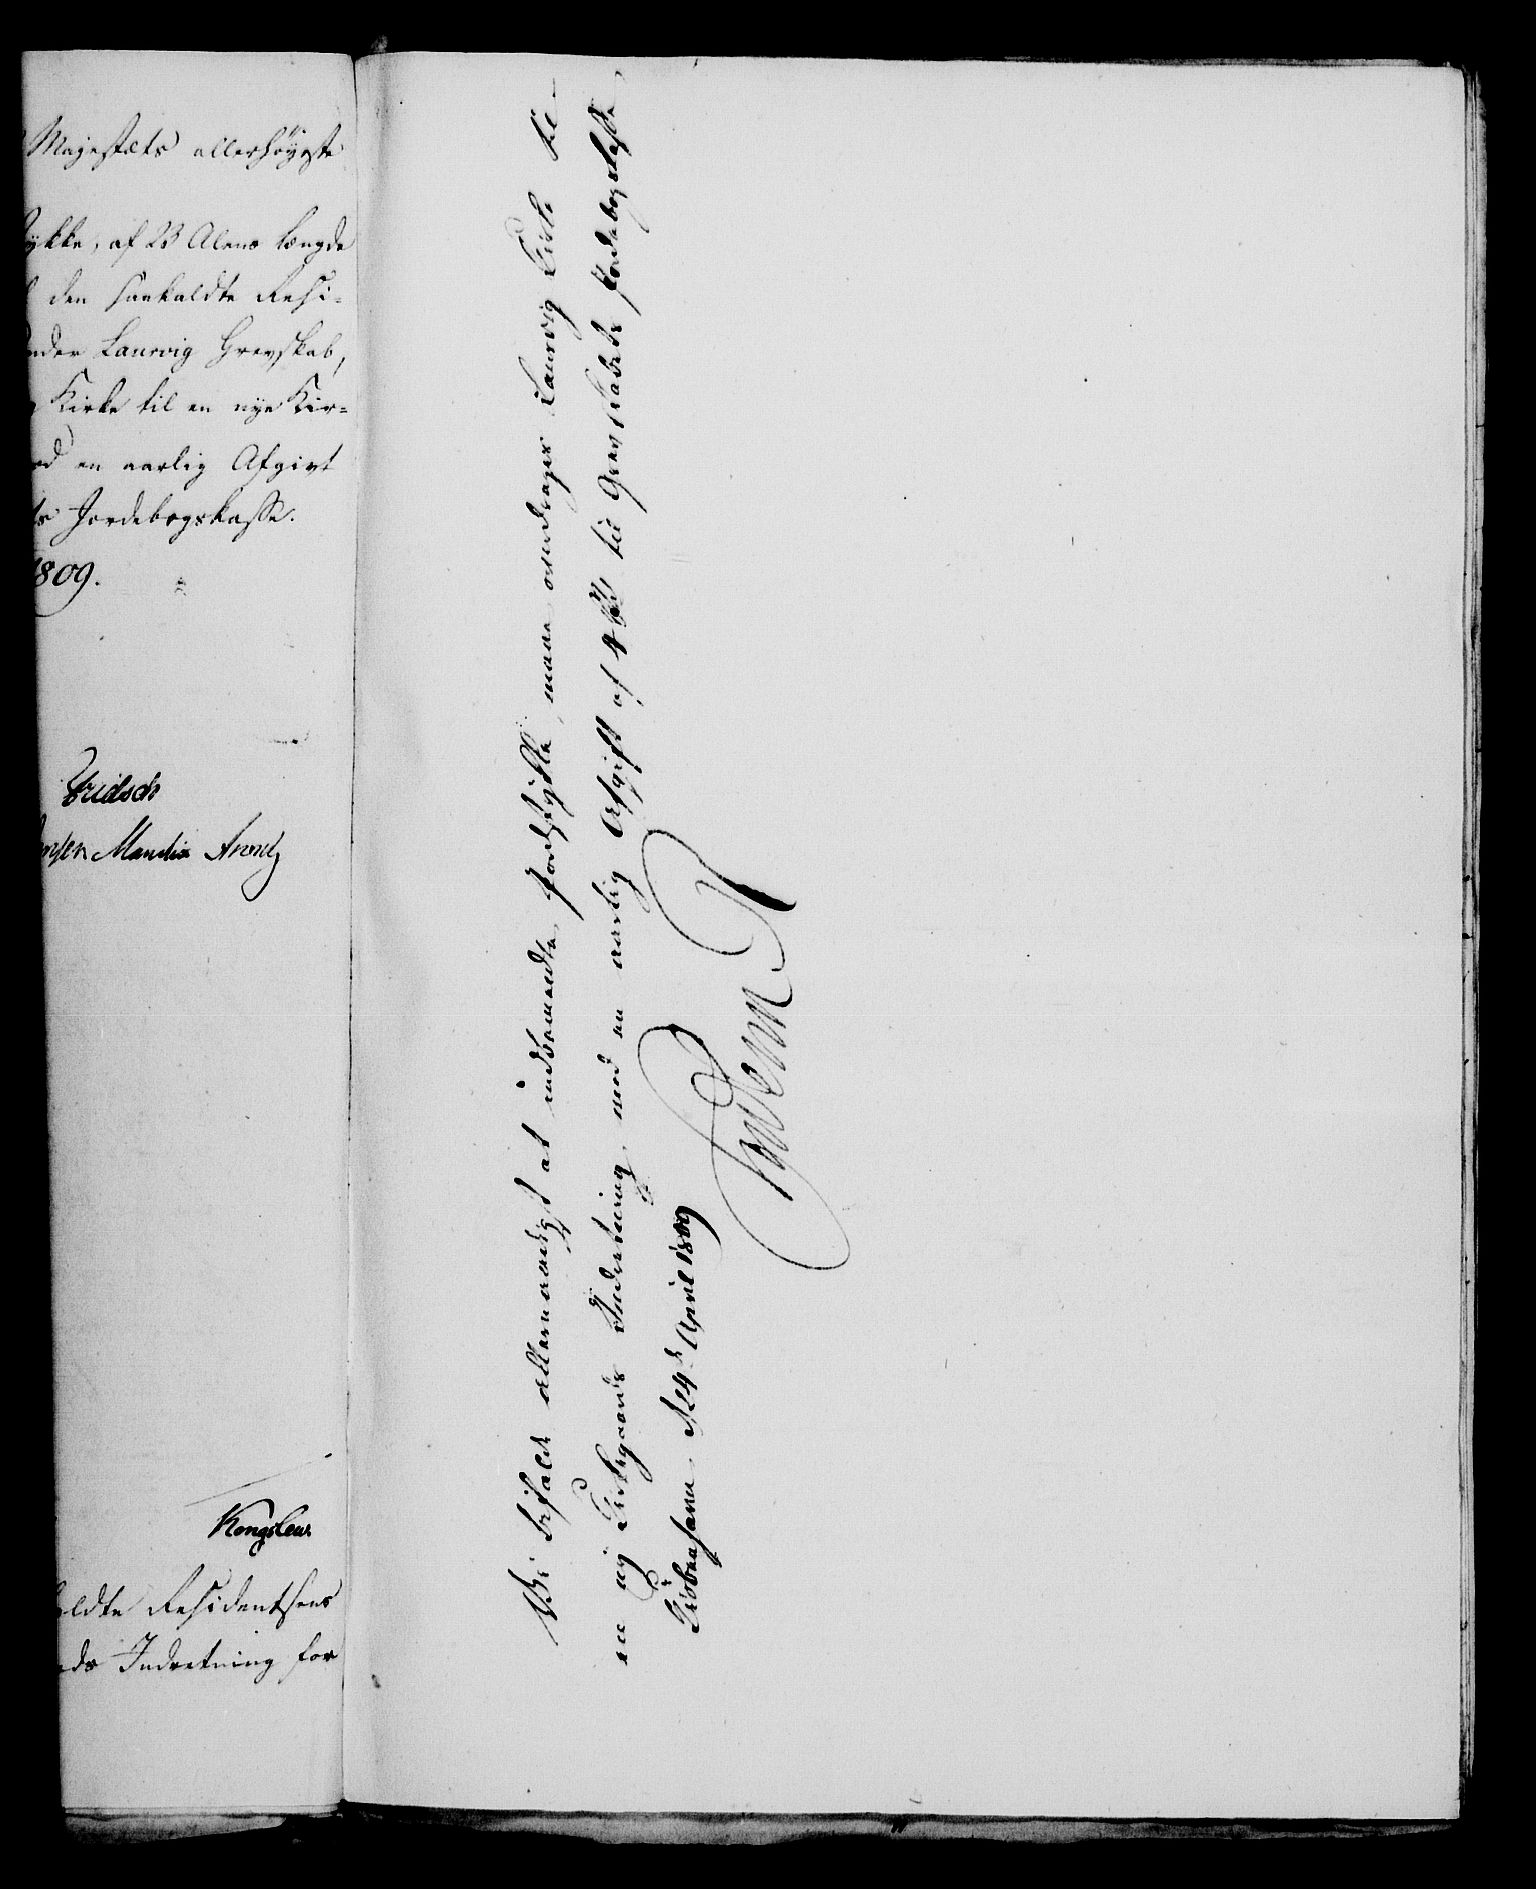 Majestæts allerhøyeste
ykke, af 23 Alens Længde
den saakaldte Resi-
nder Laurvig Grevskab,
Kirke til en nye Kir-
od en aarlig Afgivt
ts Jordebogskasse.
1809.
Fridsch
Monrad Arentz
Kongslew
aldte Residentsens
ds Indretning for
Vi bifalde allernaadigst at indbemeldte Jordstykke, maae overdrages Laurvig Kirke til
en nij Kirkegaards Indretning, mod en aarlig Afgift af 4 rd til Grevskabets Jordebogskasse
Kiøbenhavn d 24de April 1809
Frederik R